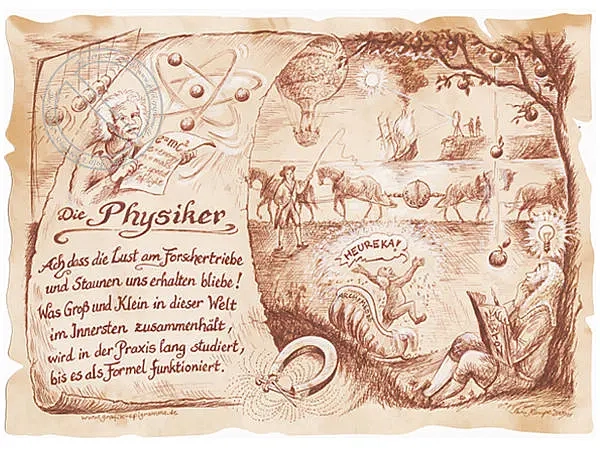 E=mc²
Die Physiker
Ach dass die Lust am Forschertriebe
und Staunen uns erhalten bliebe!
Was Groß und Klein in dieser Welt
im Innersten zusammenhält,
wird in der Praxis lang studiert,
bis es als Formel funktioniert.
HEUREKA!
ARCHIMEDES
www.grafik-epigramme.de